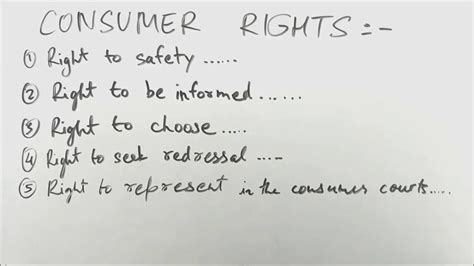 CONSUMER RIGHTS :-
① Right to safety ......
② Right to be informed ......
③ Right to choose .....
④ Right to seek redressal .....
⑤ Right to represent in the consumer courts .....